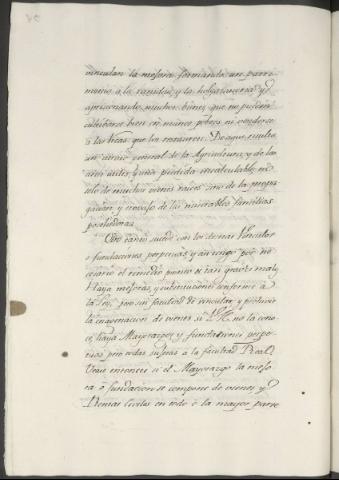 vinculan la mejora formando un patri
monio a la vanidad, y la holgazaneria, y
aprisionando muchos bienes, que no pudiendo
cultivarse bien en manos pobres ni venderse
a las ricas, que los restauren. De aqui resulta
un atraso general de la Agricultura, y de las
artes utiles, y una perdida incalculable, no
solo de muchos bienes raices, sino de la propa
gacion, y trabajo de las miserables familias
poseedoras.
Otro tanto sucede con los demas Vinculos
o fundaciones perpetuas, y así tengo por ne
cesario el remedio pronto a tan grave mal.
Haya mejoras, y substituciones conforme a
la Ley, pero sin facultad de vincular, y prohivir
la enagenacion de bienes si V.M. no la conce
de, haya Mayorazgos, y fundaciones perpe
tuas, pero todas sujetas a la facultad Real.
Vease entonces si el Mayorazgo la mejo
ra o fundacion se compone de bienes, y
Rentas Civiles en todo o la mayor parte